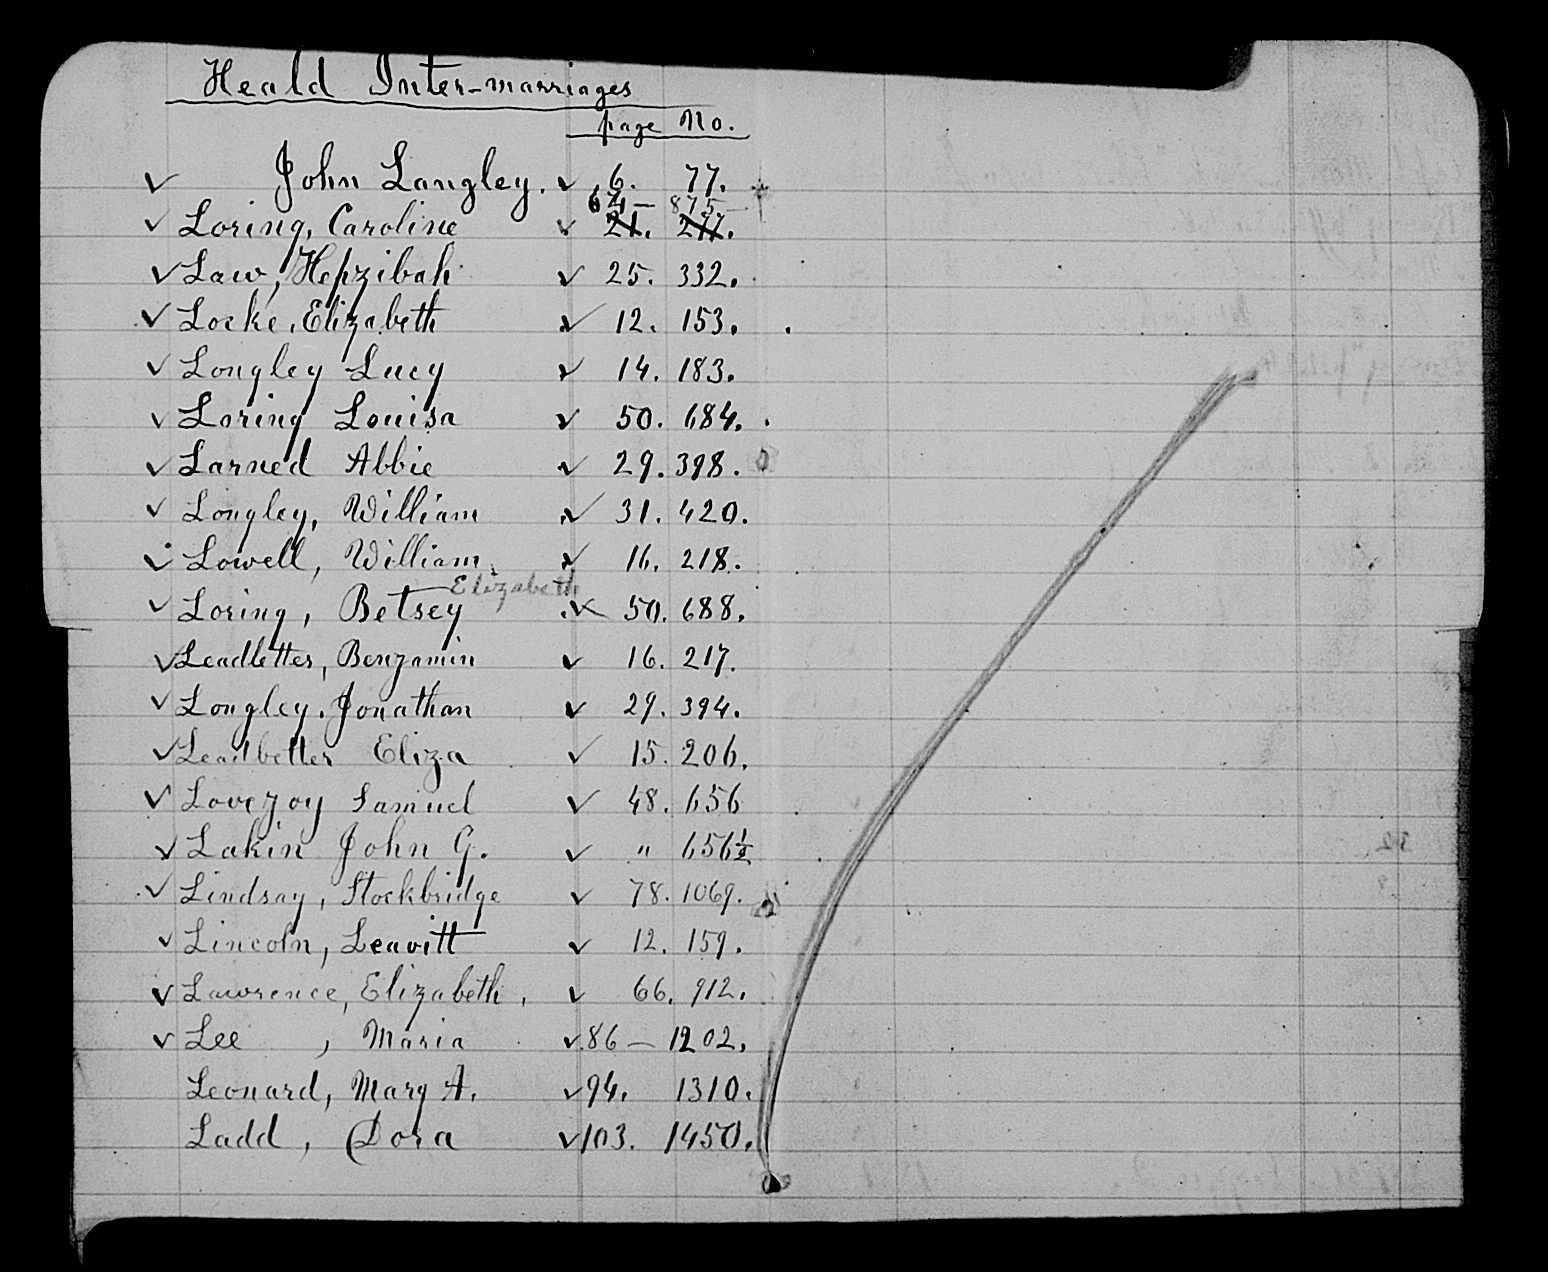 Heald Inter-marriages
page No.
✓ John Langley. ✓ 6. 77.
64 — 875 —
✓ Loring, Caroline ✓ 21. 277.
✓ Law, Hepzibah ✓ 25. 332.
✓ Locke, Elizabeth ✓ 12. 153.
✓ Longley Lucy ✓ 14. 183.
✓ Loring Louisa ✓ 50. 684.
✓ Larned Abbie ✓ 29. 398.
✓ Longley, William ✓ 31. 420.
✓ Lowell, William ✓ 16. 218.
Elizabeth
✓ Loring, Betsey ✓ 50. 688.
✓ Leadbetter, Benjamin ✓ 16. 217.
✓ Longley, Jonathan ✓ 29. 394.
✓ Leadbetter Eliza ✓ 15. 206.
✓ Lovejoy Samuel ✓ 48. 656
✓ Lakin John G. ✓ " 656½
✓ Lindsay, Stockbridge ✓ 78. 1069.
✓ Lincoln, Leavitt ✓ 12. 159.
✓ Lawrence, Elizabeth, ✓ 66. 912.
✓ Lee , Maria ✓ 86 — 1202.
Leonard, Mary A. ✓ 94. 1310.
Ladd, Dora ✓ 103. 1450.